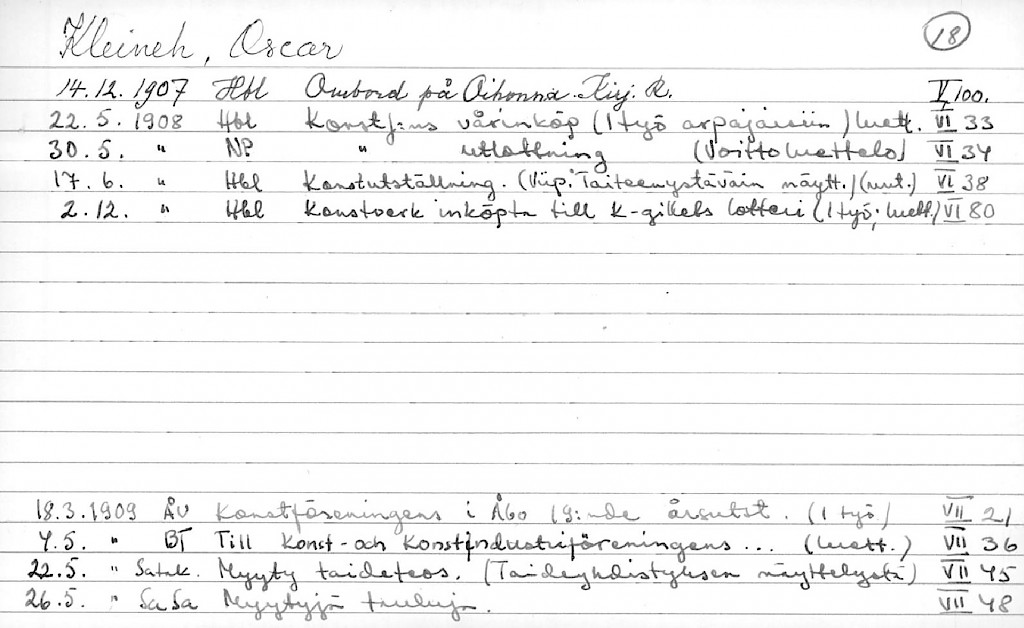 Kleineh, Oscar 18
14.12.1907 Hbl Ombord på Oihonna. Kirj. R. V 100.
22.5.1908 Hbl Konstf:ns vårinköp (1 työ arpajaisiin) luett. VI 33
30.5. " NP " utlottning (Voittoluettelo) VI 34
17.6. " Hbl Konstutställning. (Viip. Taiteenystäväin näytt.) (uut.) VI 38
2.12. " Hbl Konstverk inköpta till K-gillets lotteri (1 työ; luett.) VI 80
18.3.1909 ÅU Konstföreningens i Åbo 19:nde årsutst. (1 työ) VII 21
4.5. " BT Till Konst- och Konstindustriföreningens ... (luett.) VII 36
22.5. " Satak. Myyty taideteos. (Taideyhdistyksen näyttelystä) VII 45
26.5. " SaSa Myytyjä tauluja. VII 48